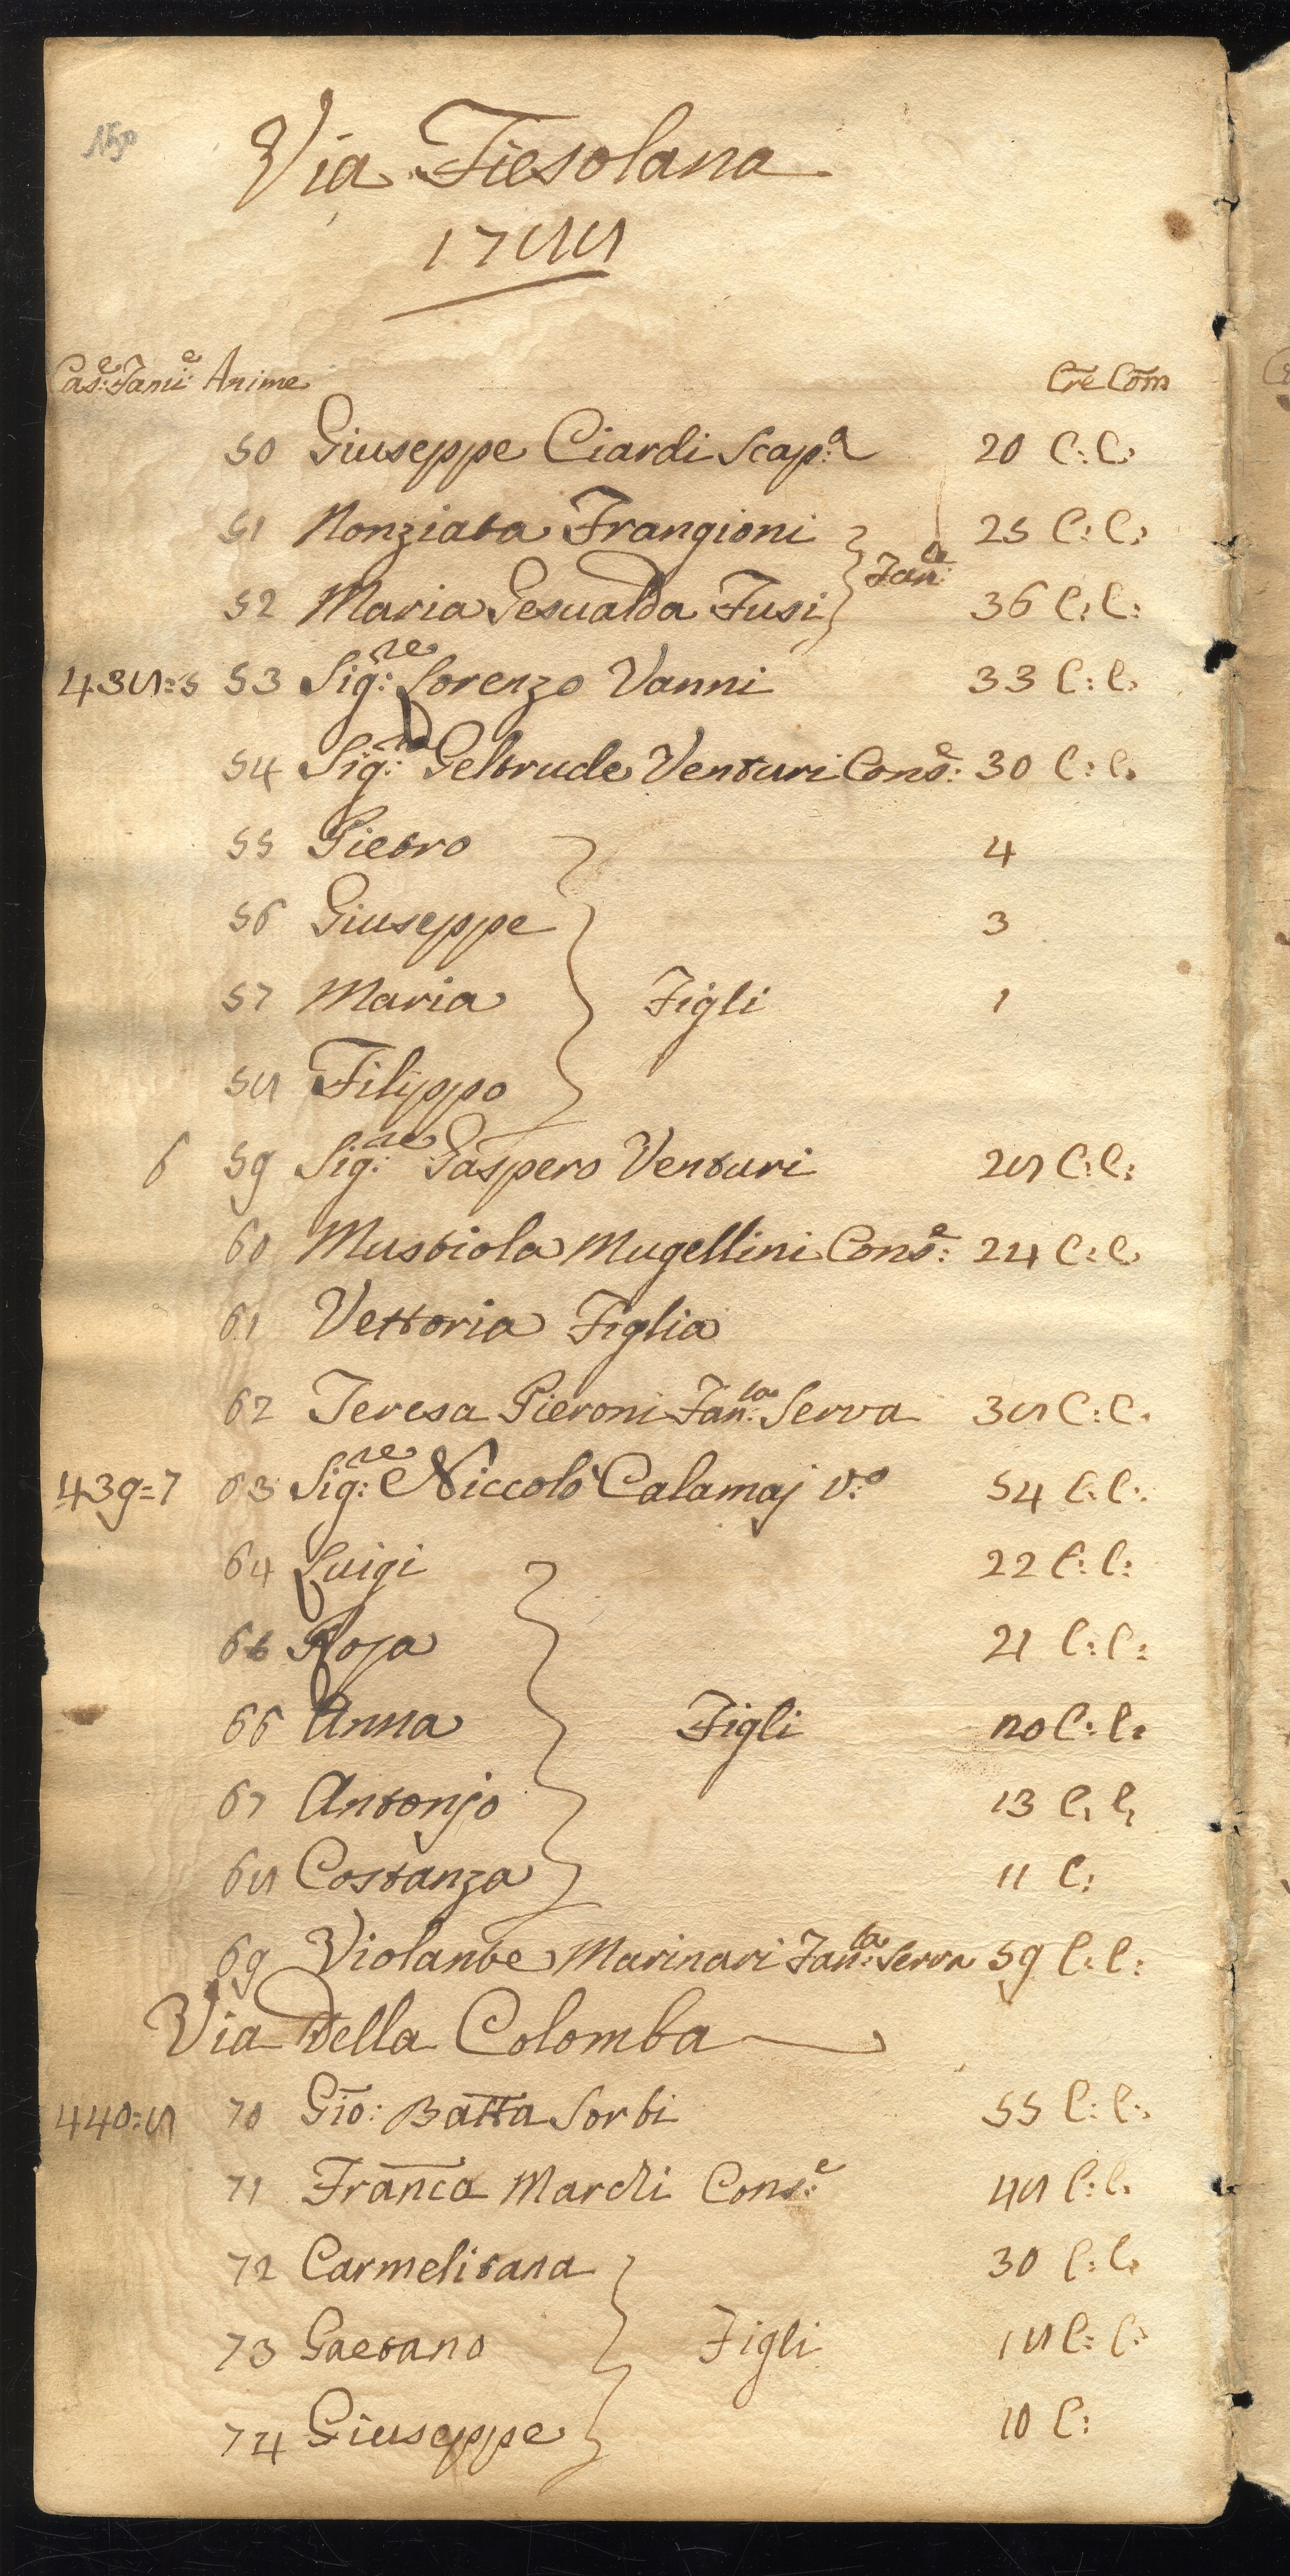 Via Fiesolana
1788
Cas:e Fami:e Anime Cre Com
50 Giuseppe Ciardi Scap:o 20 C: C:
51 Nonziata Frangioni 25 C: C:
Fan:le
52 Maria Gesualda Fusi 36 C: C:
438=5 53 Sig:re Lorenzo Vanni 33 C: C:
54 Sig:ra Geltrude Venturi Cons:e 30 C: C:
55 Pietro 4
56 Giuseppe 3
57 Maria Figli 1
58 Filippo
6 59 Sig:re Gaspero Venturi 28 C: C:
60 Mustiola Mugellini Cons:e 24 C: C:
61 Vettoria Figlia
62 Teresa Pieroni Fan:la Serva 38 C: C:
439=7 63 Sig:re Niccolò Calamaj V:o 54 C: C:
64 Luigi 22 C: C:
65 Rosa 21 C: C:
66 Anna Figli 20 C: C:
67 Antonjo 13 C: C:
68 Costanza 11 C:
69 Violante Marinari Fan:la Serva 59 C: C:
Via della Colomba
440=8 70 Gio: Batta Sorbi 55 C: C:
71 Franca Mardi Cons:e 48 C: C:
72 Carmelitana 30 C: C:
73 Gaetano Figli 18 C: C:
74 Giuseppe 10 C: